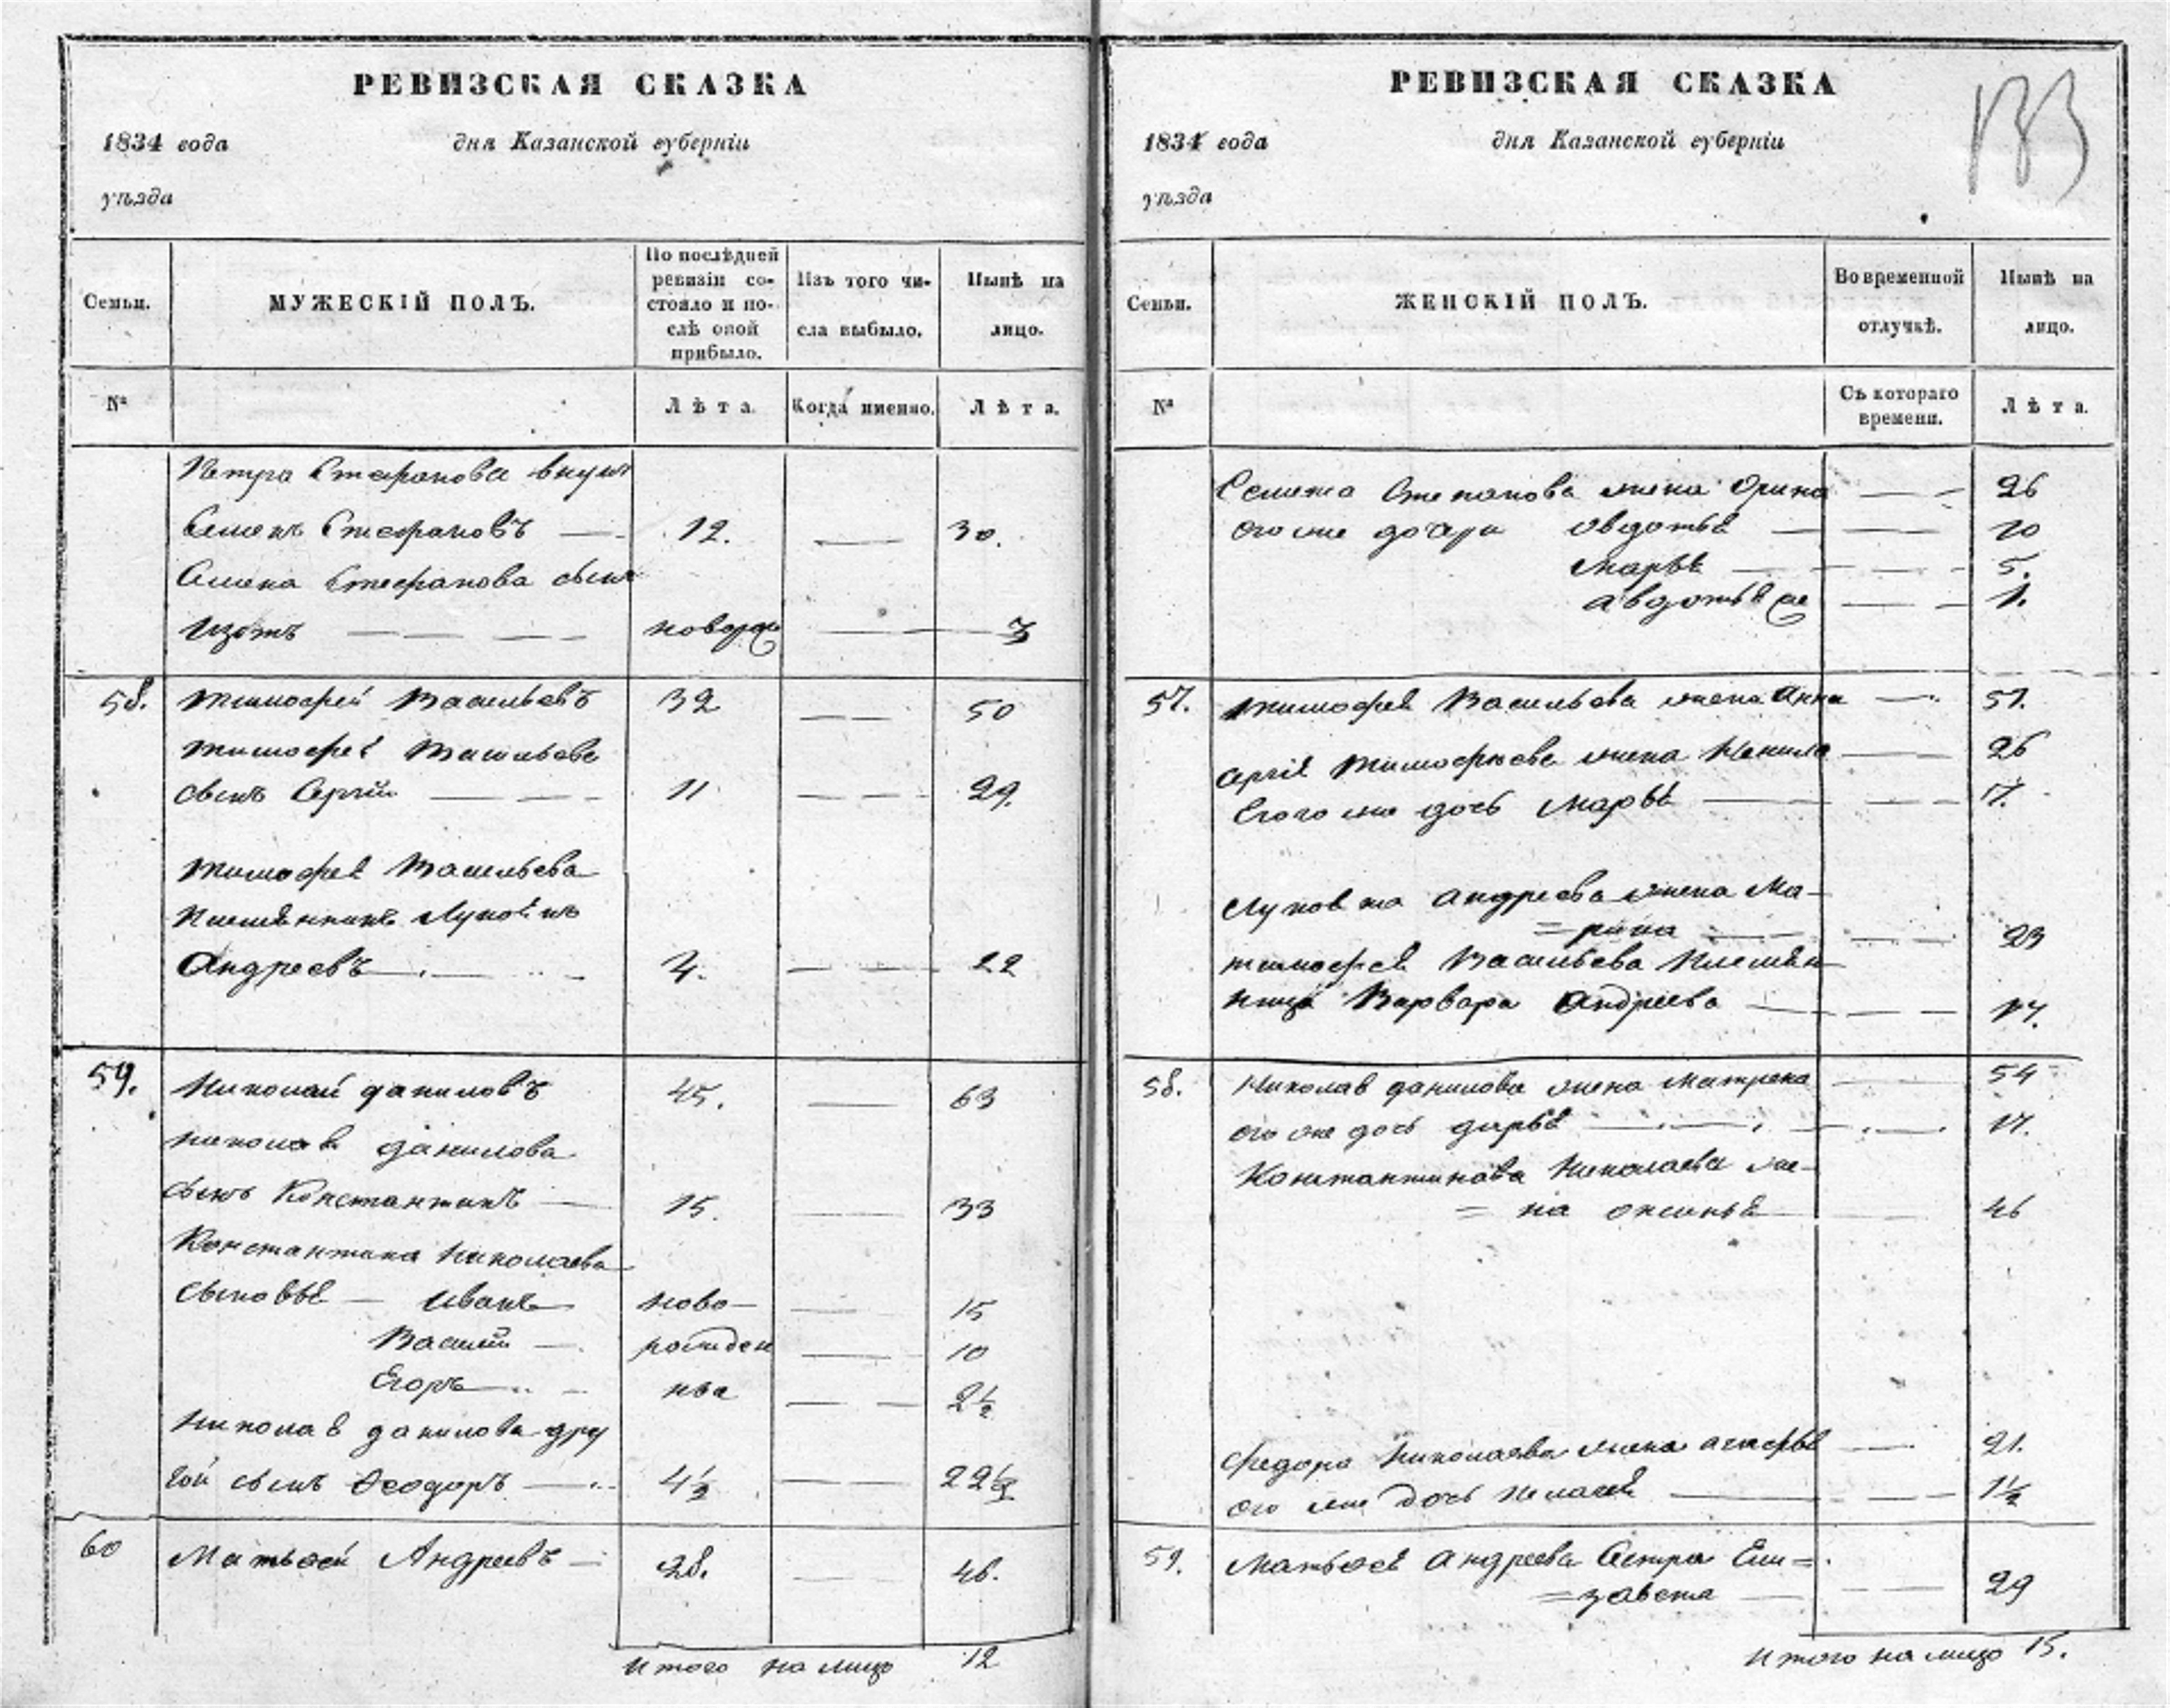 РЕВИЗСКАЯ СКАЗКА
1834 года дня Казанской губерніи
уѣзда
Семьи.
МУЖЕСКІЙ ПОЛЪ.
По послѣдней
ревизіи со-
стояло и по-
слѣ оной
прибыло.
Изъ того чи-
сла выбыло.
Нынѣ на
лицо.
№
Лѣта.
Когда именно.
Лѣта.
Петра Стефанова внукъ
Семенъ Стефановъ 12. 30.
Семена Стефанова сынъ
Изотъ новорож 3
58. Тимофей Васильевъ 32 50
Тимофея Васильева
сынъ Сергій 11 29.
Тимофея Васильева
племянникъ Лукоянъ
Андреевъ 4. 22
59. Николай Даниловъ 45. 63
Николая Данилова
сынъ Константинъ 15. 33
Константина Николаева
сыновья Иванъ ново- 15
Василий рожден 10
Егоръ ныя 2½
Николая Данилова дру
гой сынъ Ѳеодоръ 4½ 22½
60 Матвей Андреевъ 28. 46.
Итого на лицо 12
РЕВИЗСКАЯ СКАЗКА
133
1834 года дня Казанской губерніи
уѣзда
Семьи.
ЖЕНСКІЙ ПОЛЪ.
Во временной
отлучкѣ.
Нынѣ на
лицо.
№
Съ котораго
времени.
Лѣта.
Семена Степанова жена Орина 26
его же дочери Овдотья 10
Марья 5.
Авдотья 1.
57. Тимофея Васильева жена Анна 51.
Сергія Тимофѣева жена Ненила 26
Егого же дочь Марья 1.
Лукояна Андреева жена Ма-
=рина 23
Тимофея Васильева племян
ница Варвара Андреева 17.
58. Николая Данилова жена Матрена 54
его же дочь Дарья 17.
Константинова Николаева же-
= на Оксинья 46
Федора Николаева жена Агафья 21.
его же дочь Пелагея 1½
59. Матвея Андреева сестра Ели=
=завета 29
Итого на лицо 15.